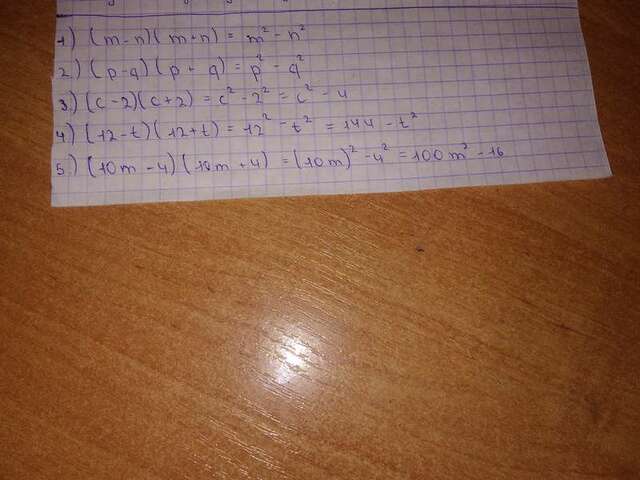 1) (m-n)(m+n) = m² - n²
2) (p-q)(p+q) = p² - q²
3) (c-2)(c+2) = c² - 2² = c² - 4
4) (12-t)(12+t) = 12² - t² = 144 - t²
5) (10m-4)(10m+4) = (10m)² - 4² = 100m² - 16